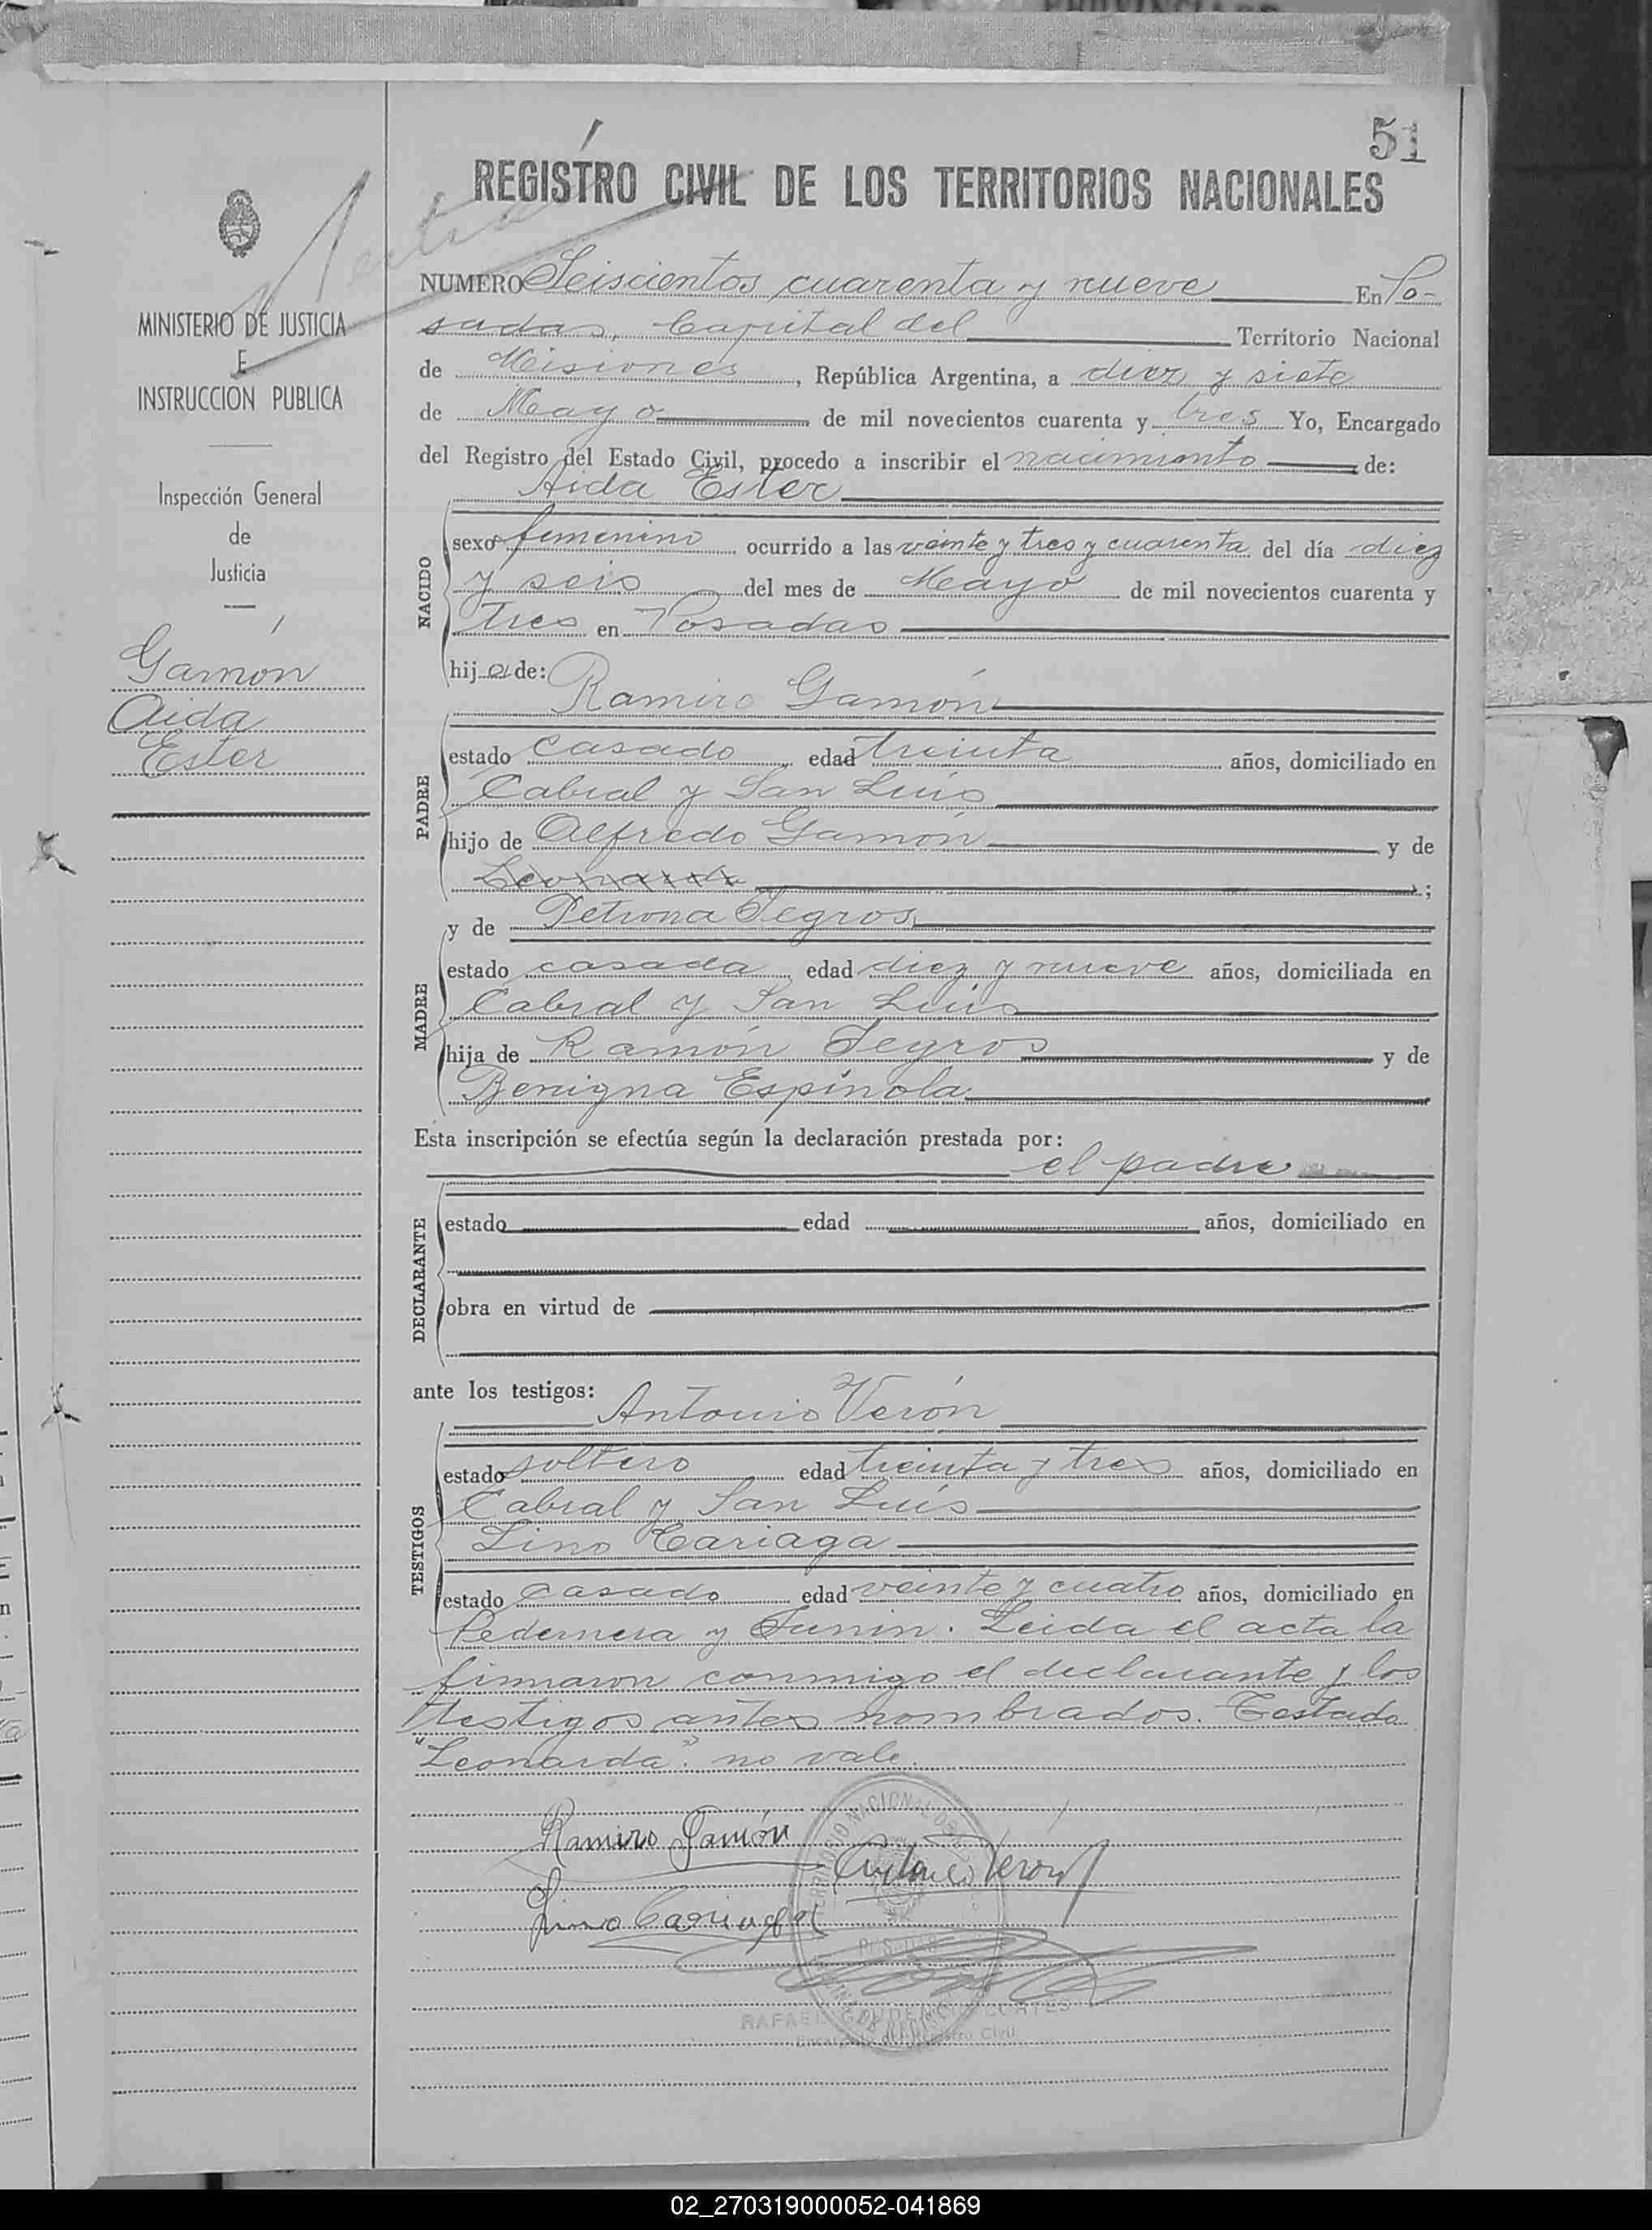 51
REGISTRO CIVIL DE LOS TERRITORIOS NACIONALES
MINISTERIO DE JUSTICIA
E
INSTRUCCION PUBLICA
Inspección General
de
Justicia
Gamón
Aida
Ester
NUMERO Seiscientos cuarenta y nueve En Po-
sadas, Capital del Territorio Nacional
de Misiones, República Argentina, a diez y siete
de Mayo de mil novecientos cuarenta y tres Yo, Encargado
del Registro del Estado Civil, procedo a inscribir el nacimiento de:
Aida Ester
NACIDO
sexo femenino ocurrido a las veinte y tres y cuarenta del día diez
y seis del mes de Mayo de mil novecientos cuarenta y
tres en Posadas
hij a de:
Ramiro Gamón
PADRE
estado casado edad treinta años, domiciliado en
Cabral y San Luis
hijo de Alfredo Gamón y de
Leonarda ;
y de Petrona Segros
MADRE
estado casada edad diez y nueve años, domiciliada en
Cabral y San Luis
hija de Ramón Segros y de
Benigna Espínola
Esta inscripción se efectúa según la declaración prestada por:
el padre
DECLARANTE
estado edad años, domiciliado en
obra en virtud de
ante los testigos:
Antonio Verón
TESTIGOS
estado soltero edad treinta y tres años, domiciliado en
Cabral y San Luis
Lino Cariaga
estado casado edad veinte y cuatro años, domiciliado en
Pedernera y Junin. Leida el acta la
firmaron conmigo el declarante y los
testigos antes nombrados. Testado
"Leonarda". no vale.
Ramiro Gamón
Antonio Verón
Lino Cariaga
RAFAEL CORTES
Encargado del Registro Civil
02_270319000052-041869